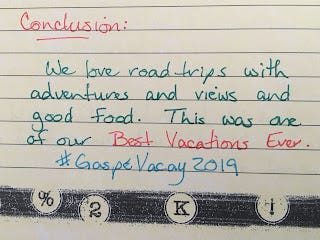 Conclusion:
We love road trips with
adventures and views and
good food. This was one
of our Best Vacations Ever.
#GaspéVacay2019
% 2 K !